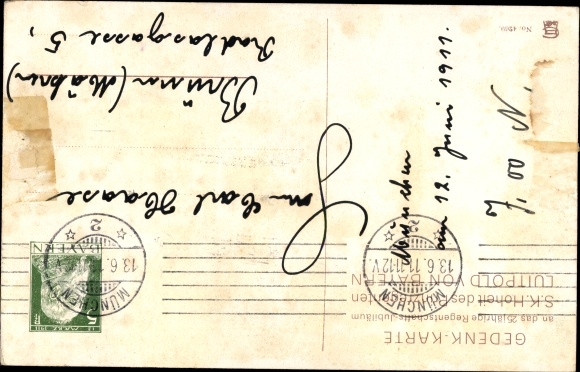 GEDENK-KARTE
an das 25jährige Regentschafts-Jubiläum
S.K.Hoheit des Prinzregenten
LUITPOLD VON BAYERN
MÜNCHEN 2
13.6.11.11-12V
BAYERN
MÜNCHEN 2
13.6.11.11-12V
BAYERN
BAYERN
5
Carl Haase
Brünn (Mähren)
Radlasgasse 5,
München
am 12. Juni 1911.